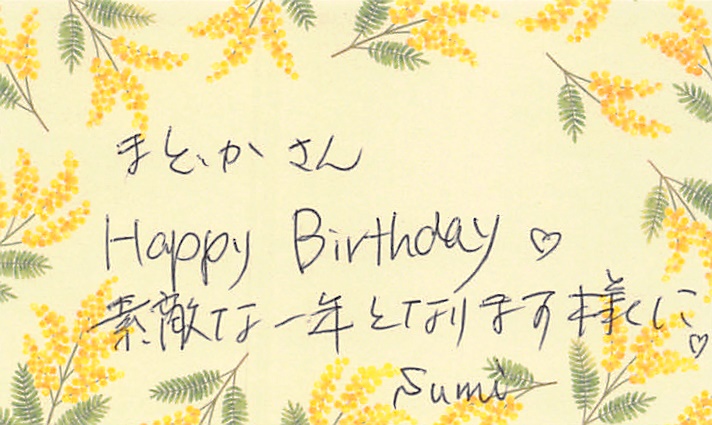 まどかさん
Happy Birthday ♡
素敵な一年となります様に♡
Sumi